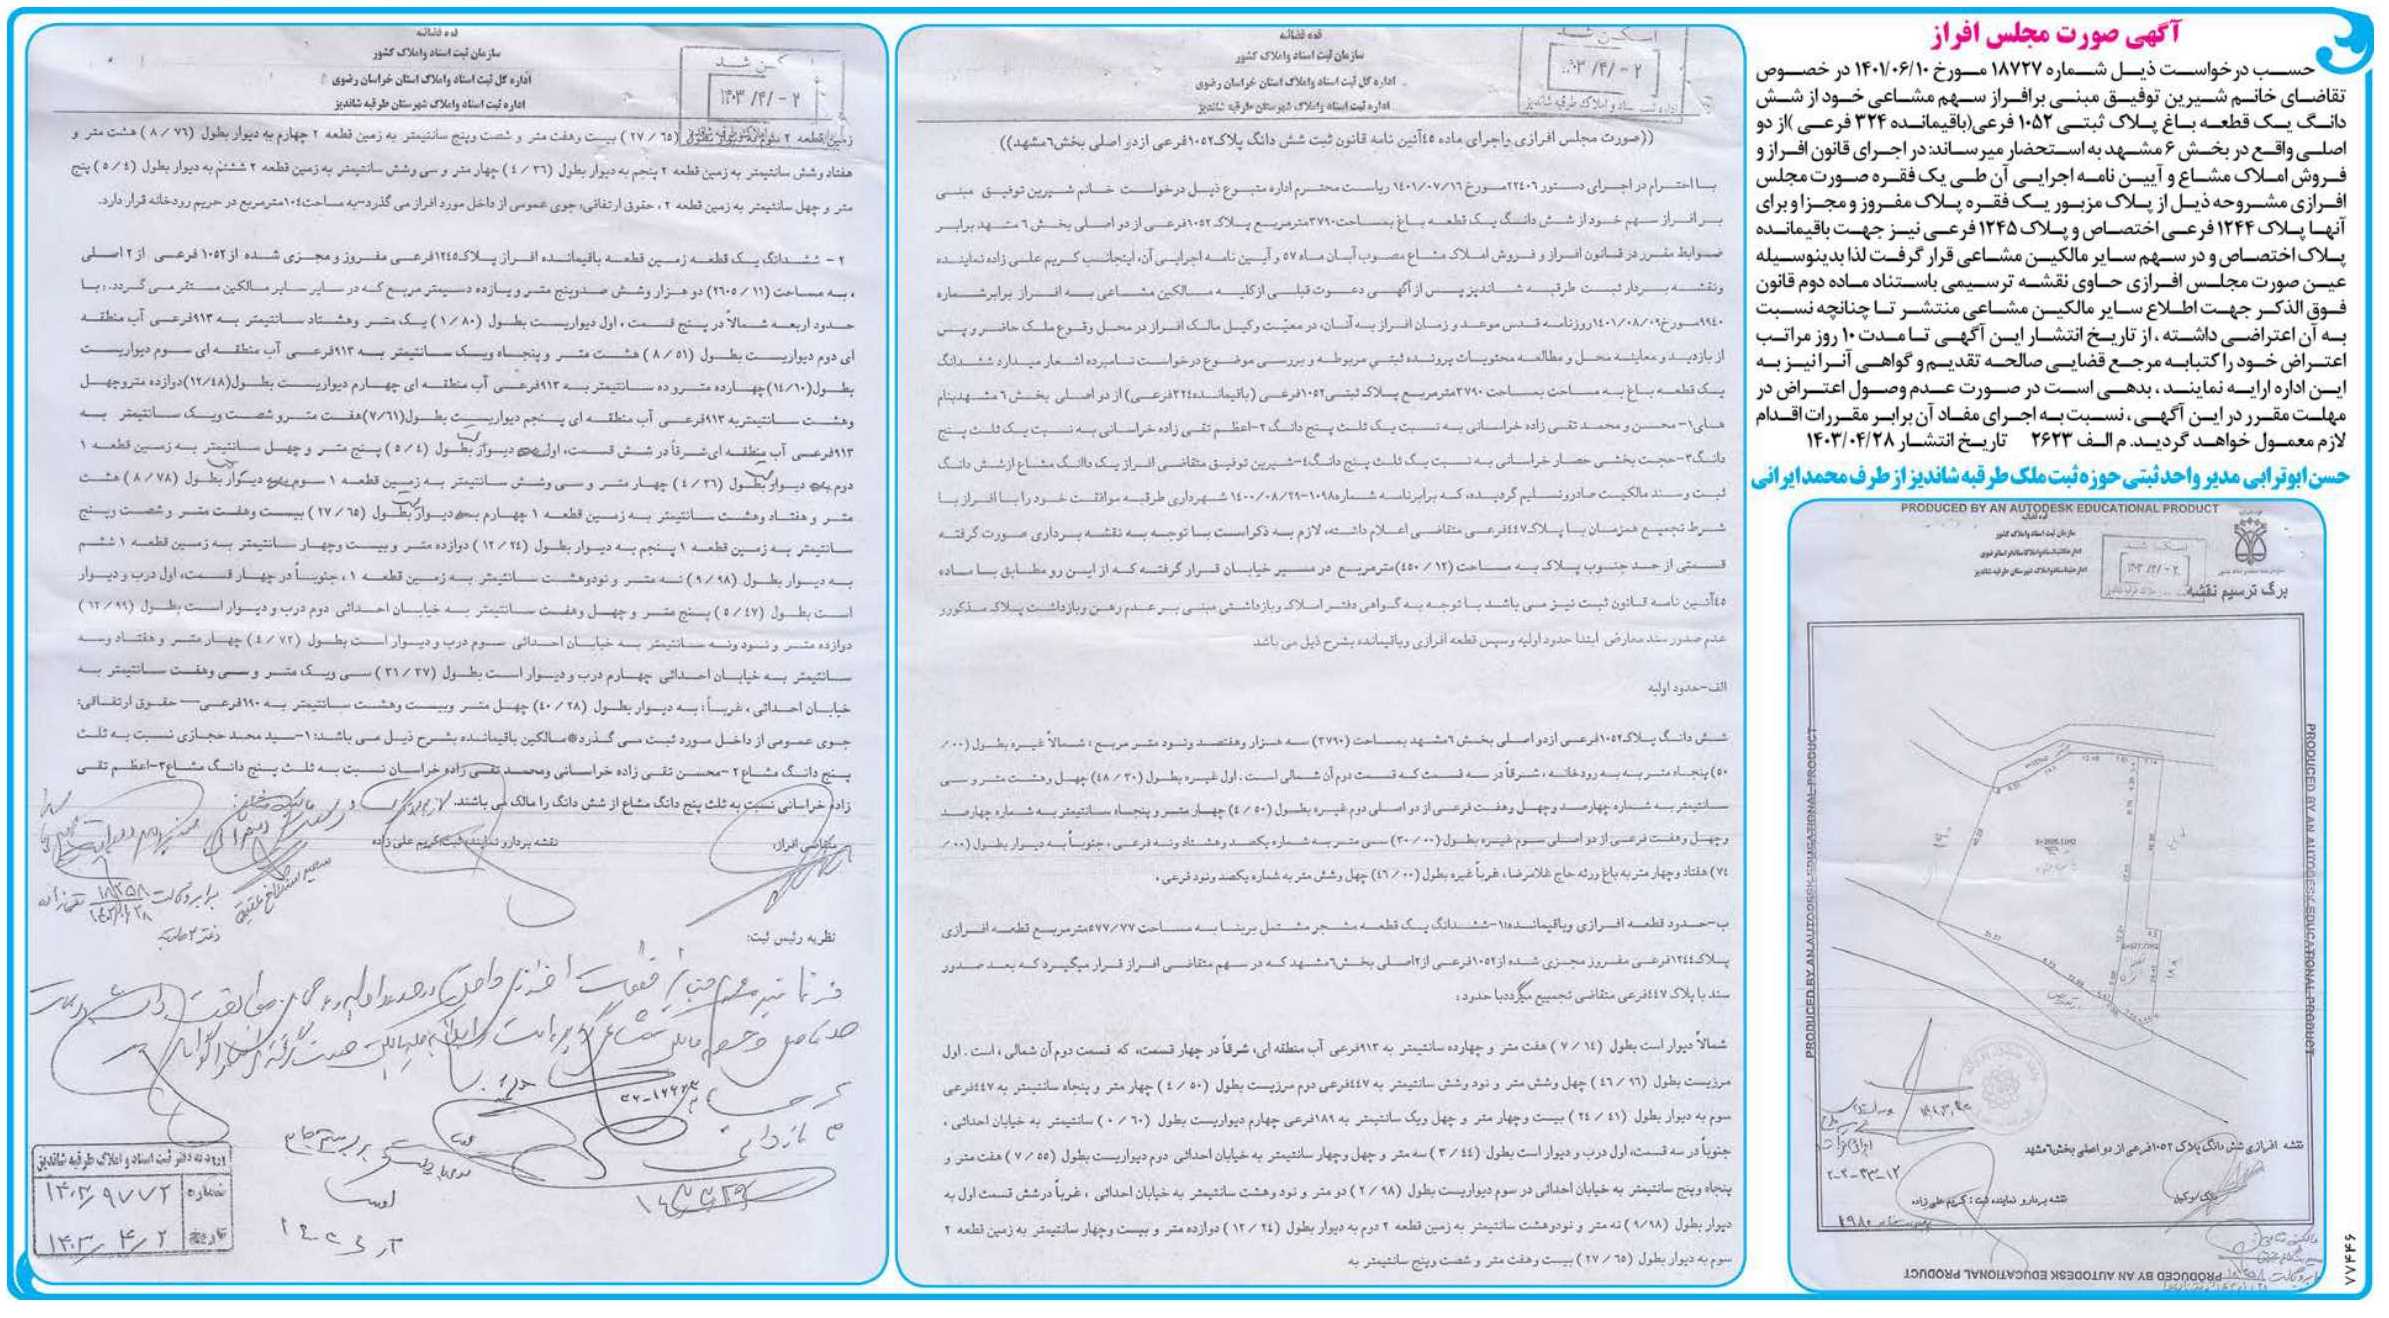 آگهی صورت مجلس افراز
حسب درخواست ذیل شماره ۱۸۷۲۷ مورخ ۱۴۰۱/۰۶/۱۰ در خصوص
تقاضای خانم شیرین توفیق مبنی برافراز سهم مشاعی خود از شش
دانگ یک قطعه باغ پلاک ثبتی ۱۰۵۲ فرعی(باقیمانده ۳۲۴ فرعی )از دو
اصلی واقع در بخش ۶ مشهد به استحضار میرساند: در اجرای قانون افراز و
فروش املاک مشاع و آیین نامه اجرایی آن طی یک فقره صورت مجلس
افرازی مشروحه ذیل از پلاک مزبور یک فقره پلاک مفروز و مجزا و برای
آنها پلاک ۱۲۴۴ فرعی اختصاص و پلاک ۱۲۴۵ فرعی نیز جهت باقیمانده
پلاک اختصاص و در سهم سایر مالکین مشاعی قرار گرفت لذا بدینوسیله
عین صورت مجلس افرازی حاوی نقشه ترسیمی باستناد ماده دوم قانون
فوق الذکر جهت اطلاع سایر مالکین مشاعی منتشر تا چنانچه نسبت
به آن اعتراضی داشته ، از تاریخ انتشار این آگهی تا مدت ۱۰ روز مراتب
اعتراض خود را کتبابه مرجع قضایی صالحه تقدیم و گواهی آنرا نیز به
این اداره ارایه نمایند ، بدهی است در صورت عدم وصول اعتراض در
مهلت مقرر در این آگهی ، نسبت به اجرای مفاد آن برابر مقررات اقدام
لازم معمول خواهد گردید. م الف ۲۶۲۳ تاریخ انتشار ۱۴۰۳/۰۴/۲۸
حسن ابوترابی مدیر واحد ثبتی حوزه ثبت ملک طرقبه شاندیز از طرف محمد ایرانی
PRODUCED BY AN AUTODESK EDUCATIONAL PRODUCT
سازمان ثبت اسناد و املاک کشور
برگ ترسیم نقشه
PRODUCED BY AN AUTODESK EDUCATIONAL PRODUCT
PRODUCED BY AN AUTODESK EDUCATIONAL PRODUCT
نقشه افرازی شش دانگ پلاک ۱۰۵۲فرعی از دو اصلی بخش۶مشهد
نقشه بردار و نماینده ثبت : کریم علی زاده
PRODUCED BY AN AUTODESK EDUCATIONAL PRODUCT
۷۷۴۴۶
قوه قضائیه
سازمان ثبت اسناد واملاک کشور
اداره کل ثبت اسناد واملاک استان خراسان رضوی
اداره ثبت اسناد واملاک شهرستان طرقبه شاندیز
۱۴۰۳/۴/-۲
((صورت مجلس افرازی واجرای ماده ۴۵آئین نامه قانون ثبت شش دانگ پلاک۱۰۵۲فرعی ازدو اصلی بخش۶مشهد))
با احترام در اجرای دستور ۲۲۴۰۶مورخ ۱۴۰۱/۰۷/۱۶ ریاست محترم اداره متبوع ذیل درخواست خانم شیرین توفیق مبنی
بر افراز سهم خود از شش دانگ یک قطعه باغ بمساحت۳۷۹۰مترمربع پلاک۱۰۵۲فرعی از دو اصلی بخش ۶ مشهد برابر
ضوابط مقرر در قانون افراز و فروش املاک مشاع مصوب آبان ماه ۵۷ و آیین نامه اجرایی آن، اینجانب کریم علی زاده نماینده
ونقشه بردار ثبت طرقبه شاندیز پس از آگهی دعوت قبلی از کلیه مالکین مشاعی به افراز برابر شماره
۹۹۴۰مورخ۱۴۰۱/۰۸/۰۹روزنامه قدس موعد و زمان افراز به آنان، در معیت وکیل مالک افراز در محل وقوع ملک حاضر و پس
از بازدید و معاینه محل و مطالعه محتویات پرونده ثبتی مربوطه و بررسی موضوع درخواست نامبرده اشعار میدارد ششدانگ
یک قطعه باغ به مساحت بمساحت ۳۷۹۰مترمربع پلاک ثبتی۱۰۵۲فرعی (باقیمانده۳۲۴فرعی) از دو اصلی بخش ۶ مشهدبنام
های۱- محسن و محمد تقی زاده خراسانی به نسبت یک ثلث پنج دانگ ۲-اعظم تقی زاده خراسانی به نسبت یک ثلث پنج
دانگ۳-حجت بخشی حصار خراسانی به نسبت یک ثلث پنج دانگ۴-شیرین توفیق متقاضی افراز یک دانگ مشاع ازشش دانگ
ثبت وسند مالکیت صادروتسلیم گردیده، که برابرنامه شماره۱۰۹۸-۱۴۰۰/۰۸/۲۹ شهرداری طرقبه موافقت خود را با افراز با
شرط تجمیع همزمان با پلاک۴۴۷فرعی متقاضی اعلام داشته، لازم به ذکر است با توجه به نقشه برداری صورت گرفته
قسمتی از حد جنوب پلاک به مساحت (۴۵۰/۱۲)مترمربع در مسیر خیابان قرار گرفته که از این رو مطابق با ماده
۴۵آئین نامه قانون ثبت نیز می باشد با توجه به گواهی دفتر املاک وبازداشتی مبنی بر عدم رهن وبازداشت پلاک مذکورو
عدم صدور سند معارض ابتدا حدود اولیه وسپس قطعه افرازی وباقیمانده بشرح ذیل می باشد
الف-حدود اولیه
شش دانگ پلاک۱۰۵۲فرعی ازدو اصلی بخش ۶مشهد بمساحت (۳۷۹۰) سه هزار وهفتصد ونود متر مربع ، شمالاً غیره بطول (۰۰/
۵۰) پنجاه متر به به رودخانه ، شرقاً در سه قسمت که قسمت دوم آن شمالی است . اول غیره بطول (۴۸/۳۰) چهل وهشت متر و سی
سانتیمتر به شماره چهارصد وچهل وهفت فرعی از دو اصلی دوم غیره بطول (۴/۵۰) چهار متر و پنجاه سانتیمتر به شماره چهارصد
وچهل وهفت فرعی از دو اصلی سوم غیره بطول (۳۰/۰۰) سی متر به شماره یکصد وهشتاد ونه فرعی ، جنوباً به دیوار بطول (۰۰/
۷۴) هفتاد وچهار متر به باغ ورثه حاج غلامرضا ، غرباً غیره بطول (۴۶/۰۰) چهل وشش متر به شماره یکصد ونود فرعی .
ب-حدود قطعه افرازی وباقیمانده:۱-ششدانگ یک قطعه مشجر مشتمل بربنا به مساحت ۵۷۷/۷۷مترمربع قطعه افرازی
پلاک۱۲۴۴فرعی مفروز مجزی شده از۱۰۵۲فرعی از۲اصلی بخش۶مشهد که در سهم متقاضی افراز قرار میگیرد که بعد صدور
سند با پلاک ۴۴۷فرعی متقاضی تجمیع میگرددبا حدود:
شمالاً دیوار است بطول (۷/۱۴) هفت متر و چهارده سانتیمتر به ۹۱۳فرعی آب منطقه ای، شرقاً در چهار قسمت، که قسمت دوم آن شمالی ، است . اول
مرزیست بطول (۴۶/۹۶) چهل وشش متر و نود وشش سانتیمتر به ۴۴۷فرعی دوم مرزیست بطول (۴/۵۰) چهار متر و پنجاه سانتیمتر به ۴۴۷فرعی
سوم به دیوار بطول (۲۴/۴۱) بیست وچهار متر و چهل ویک سانتیمتر به ۱۸۹فرعی چهارم دیواریست بطول (۰/۶۰) سانتیمتر به خیابان احداثی ،
جنوباً در سه قسمت، اول درب و دیوار است بطول (۳/۴۴) سه متر و چهل وچهار سانتیمتر به خیابان احداثی دوم دیواریست بطول (۷/۵۵) هفت متر و
پنجاه وپنج سانتیمتر به خیابان احداثی در سوم دیواریست بطول (۲/۹۸) دو متر و نود وهشت سانتیمتر به خیابان احداثی ، غرباً درشش قسمت اول به
دیوار بطول (۹/۹۸) نه متر و نودوهشت سانتیمتر به زمین قطعه ۲ دوم به دیوار بطول (۱۲/۲۴) دوازده متر و بیست وچهار سانتیمتر به زمین قطعه ۲
سوم به دیوار بطول (۲۷/۶۵) بیست وهفت متر و شصت وپنج سانتیمتر به
قوه قضائیه
سازمان ثبت اسناد واملاک کشور
اداره کل ثبت اسناد واملاک استان خراسان رضوی
اداره ثبت اسناد واملاک شهرستان طرقبه شاندیز
۱۴۰۳/۴/-۲
زمین قطعه ۲ سوم به دیوار بطول (۲۷/۶۵) بیست وهفت متر و شصت وپنج سانتیمتر به زمین قطعه ۲ چهارم به دیوار بطول (۸/۷۶) هشت متر و
هفتاد وشش سانتیمتر به زمین قطعه ۲ پنجم به دیوار بطول (۴/۳۶) چهار متر و سی وشش سانتیمتر به زمین قطعه ۲ ششم به دیوار بطول (۵/۴) پنج
متر و چهل سانتیمتر به زمین قطعه ۲ ، حقوق ارتفاقی: جوی عمومی از داخل مورد افراز می گذرد-به مساحت۱۰۴مترمربع در حریم رودخانه قرار دارد.
۲- ششدانگ یک قطعه زمین قطعه باقیمانده افراز پلاک۱۲۴۵فرعی مفروز و مجزی شده از۱۰۵۲ فرعی از ۲ اصلی
، به مساحت (۲۶۰۵/۱۱) دو هزار وشش صدوپنج متر و یازده دسیمتر مربع که در سایر سایر مالکین مستقر می گردد. : با
حدود اربعه شمالاً در پنج قسمت ، اول دیواریست بطول (۱/۸۰) یک متر وهشتاد سانتیمتر به ۹۱۳فرعی آب منطقه
ای دوم دیواریست بطول (۸/۵۱) هشت متر و پنجاه ویک سانتیمتر به ۹۱۳فرعی آب منطقه ای سوم دیواریست
بطول(۱۴/۱۰)چهارده متر و ده سانتیمتر به ۹۱۳فرعی آب منطقه ای چهارم دیواریست بطول(۱۲/۴۸)دوازده متروچهل
وهشت سانتیمتربه ۹۱۳فرعی آب منطقه ای پنجم دیواریست بطول(۷/۶۱)هفت متر و شصت ویک سانتیمتر به
۹۱۳فرعی آب منطقه ای شرقاً در شش قسمت، اول دیوار بطول (۵/۴) پنج متر و چهل سانتیمتر به زمین قطعه ۱
دوم دیوار بطول (۴/۳۶) چهار متر و سی وشش سانتیمتر به زمین قطعه ۱ سوم دیوار بطول (۸/۷۸) هشت
متر و هفتاد وهشت سانتیمتر به زمین قطعه ۱ چهارم دیوار بطول (۲۷/۶۵) بیست وهفت متر و شصت وپنج
سانتیمتر به زمین قطعه ۱ پنجم به دیوار بطول (۱۲/۲۴) دوازده متر و بیست وچهار سانتیمتر به زمین قطعه ۱ ششم
به دیوار بطول (۹/۹۸) نه متر و نودوهشت سانتیمتر به زمین قطعه ۱ ، جنوباً در چهار قسمت، اول درب و دیوار
است بطول (۵/۴۷) پنج متر و چهل وهفت سانتیمتر به خیابان احداثی دوم درب و دیوار است بطول (۱۲/۹۹)
دوازده متر و نود ونه سانتیمتر به خیابان احداثی سوم درب و دیوار است بطول (۴/۷۳) چهار متر و هفتاد وسه
سانتیمتر به خیابان احداثی چهارم درب و دیوار است بطول (۳۱/۳۷) سی ویک متر و سی وهفت سانتیمتر به
خیابان احداثی ، غرباً : به دیوار بطول (۴۰/۲۸) چهل متر وبیست وهشت سانتیمتر به ۱۹۰فرعی— حقوق ارتفاقی:
جوی عمومی از داخل مورد ثبت می گذرد*مالکین باقیمانده بشرح ذیل می باشد: ۱-سید محمد حجازی نسبت به ثلث
پنج دانگ مشاع ۲-محسن تقی زاده خراسانی ومحمد تقی زاده خراسان نسبت به ثلث پنج دانگ مشاع۳-اعظم تقی
زاده خراسانی نسبت به ثلث پنج دانگ مشاع از شش دانگ را مالک می باشند.
متقاضی افراز:
نقشه بردارو نماینده ثبت:کریم علی زاده
نظریه رئیس ثبت:
ورود به دفتر ثبت اسناد و املاک طرقبه شاندیز
شماره ۱۴۰۳/۹۷۷۲
تاریخ ۱۴۰۳/۴/۲